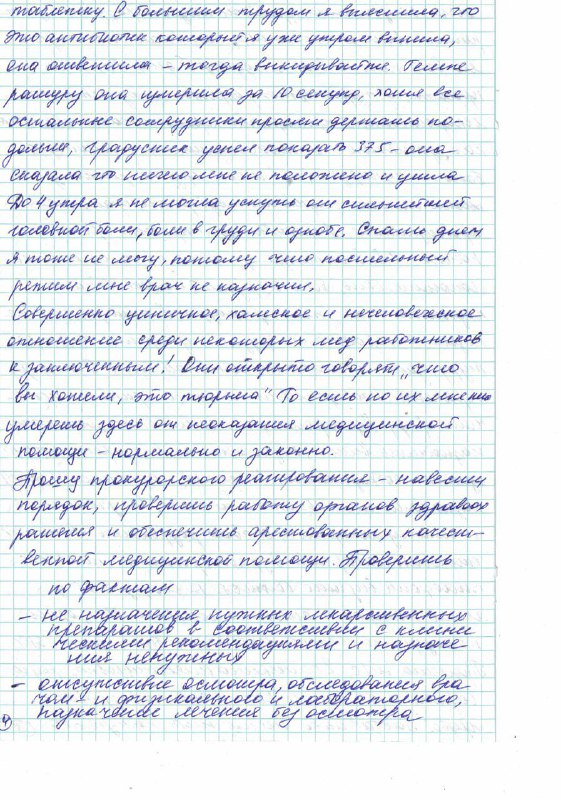 таблетку. С большим трудом я выяснила, что
это антибиотик который я уже утром выпила,
она ответила – тогда выкидывайте. Темпе
ратуру она измерила за 10 секунд, хотя все
остальные сотрудники просят держать по-
дольше, градусник успел показать 375 – она
сказала что ничего мне не положено и ушла
До 4 утра я не могла уснуть от сильнейшей
головной боли, боли в груди и озноба. Спать днем
я тоже не могу, потому что постельный
режим мне врач не назначил.
Совершенно циничное, хамское и нечеловеческое
отношение среди некоторых мед работников
к заключенным! Они открыто говорят „что
вы хотели, это тюрьма" То есть по их мнению
умереть здесь от неоказания медицинской
помощи – нормально и законно.
Прошу прокурорского реагирования – навести
порядок, проверить работу органов здравоох
ранения и обеспечить арестованных качест-
венной медицинской помощи. Проверить
по фактам
– не назначения нужных лекарственных
препаратов в соответствии с клини
ческими рекомендациями и назначе
ния ненужных
– отсутствие осмотра, обследования вра
чом – и физикального и лабораторного,
назначение лечения без осмотра